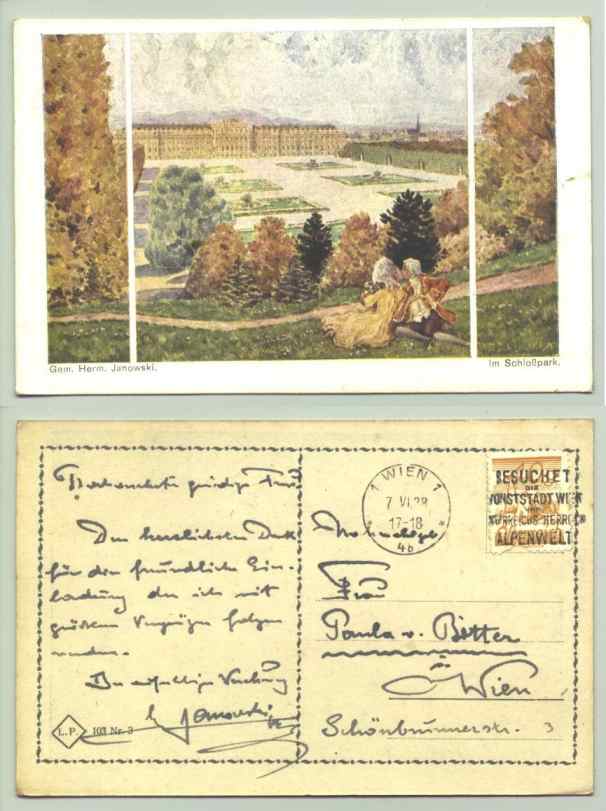 Gem. Herm. Janowski.
Im Schloßpark.
gnädige Frau
Den herzlichsten Dank
für die freundliche Ein-
ladung der ich mit
größtem Vergnügen folgen
werde.
L.P. 103 Nr. 3
1 WIEN 1
7 VI 28
17-18
* 4b *
BESUCHET
DIE
KUNSTSTADT WIEN
UND
ÖSTERREICHS HERRLICHE
ALPENWELT!
Frau
Paula v. Bitter
Wien
Schönbrunnerstr. 3